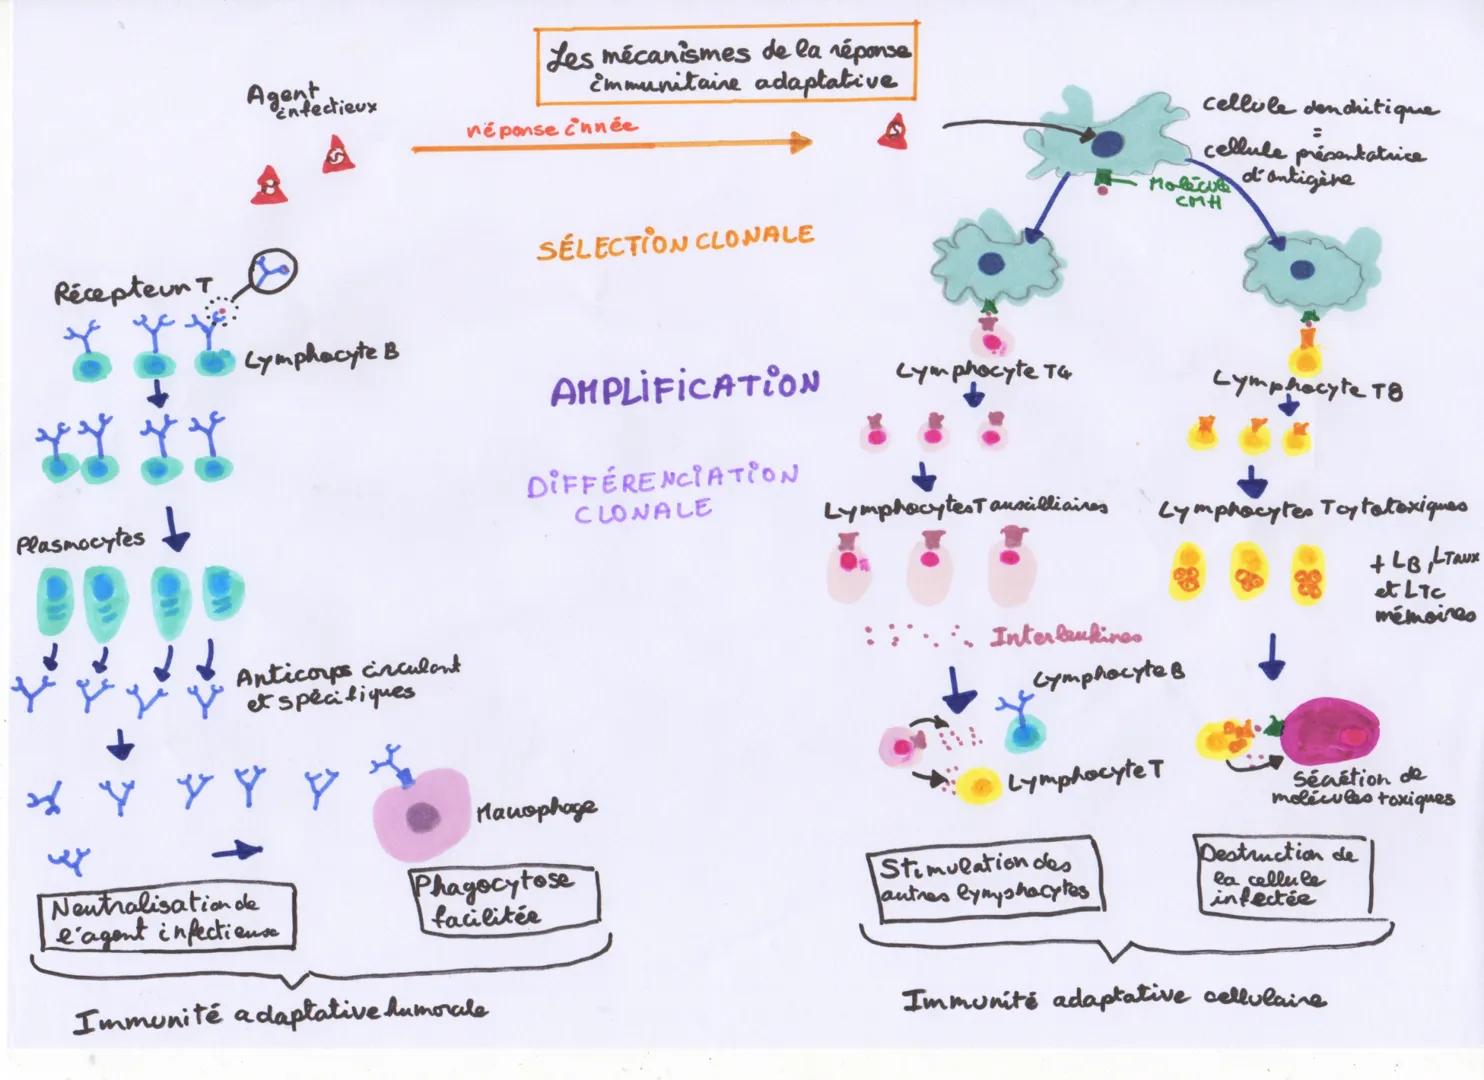 Les mécanismes de la réponse
immunitaire adaptative
Agent
infectieux
réponse innée
cellule dendritique
=
cellule présentatrice
d'antigène
Molécule
CMH
SÉLECTION CLONALE
Récepteur T
Lymphocyte B
Lymphocyte T4
Lymphocyte T8
AMPLIFICATION
DIFFÉRENCIATION
CLONALE
Plasmocytes
Lymphocytes T auxilliaires
Lymphocytes T cytotoxiques
+ LB, LTaux
et LTc
mémoires
Interleukines
Anticorps circulant
et spécifiques
Lymphocyte B
Lymphocyte T
Sécrétion de
molécules toxiques
Macrophage
Neutralisation de
l'agent infectieux
Phagocytose
facilitée
Stimulation des
autres lymphocytes
Destruction de
la cellule
infectée
Immunité adaptative humorale
Immunité adaptative cellulaire